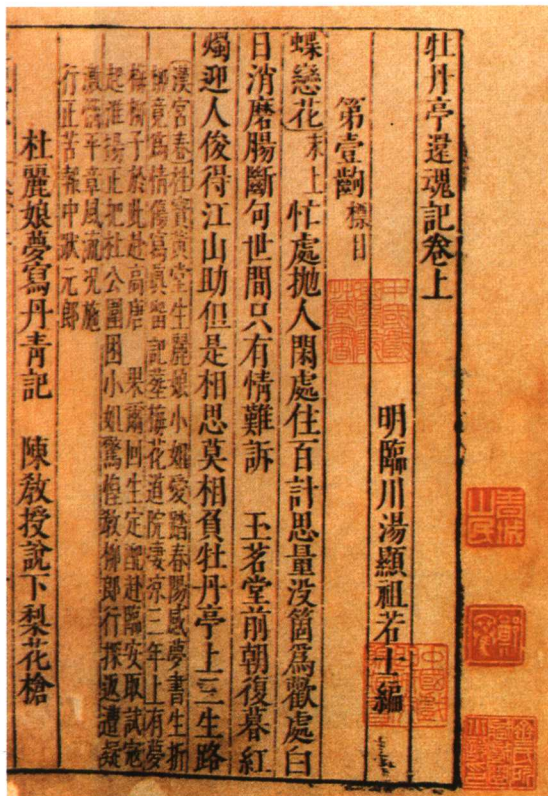 牡丹亭還魂記卷上
明臨川湯顯祖若士編
第壹齣 標目
蝶戀花 末上 忙處拋人閑處住百計思量沒箇爲歡處白
日消磨腸斷句世間只有情難訴 玉茗堂前朝復暮紅
燭迎人俊得江山助但是相思莫相負牡丹亭上三生路
漢宮春杜寶黃堂生麗娘小姐愛踏春陽感夢書生折
柳竟爲情傷寫眞留記葬梅花道院凄凉三年上有夢
梅柳子於此赴高唐 果爾回生定配赴臨安取試寇
起淮揚正把杜公圍困小姐驚惶敎柳郎行探返遭疑
激惱平章風流況施
行正苦報中狀元郎
杜麗娘夢寫丹青記 陳敎授說下梨花槍